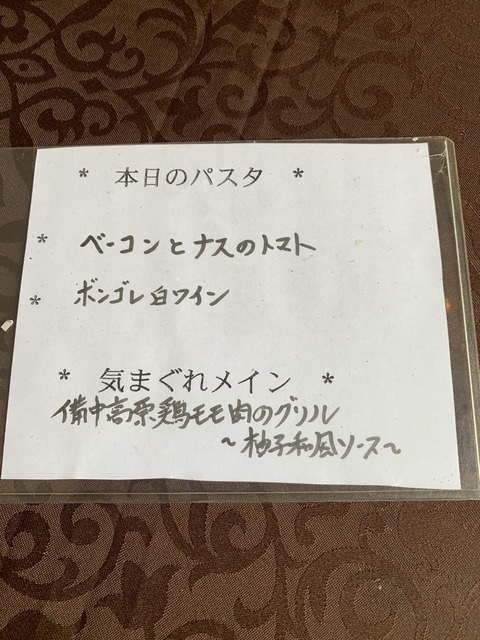 * 本日のパスタ *
* ベーコンとナスのトマト
* ボンゴレ白ワイン
* 気まぐれメイン *
備中高原鶏モモ肉のグリル
~柚子和風ソース~